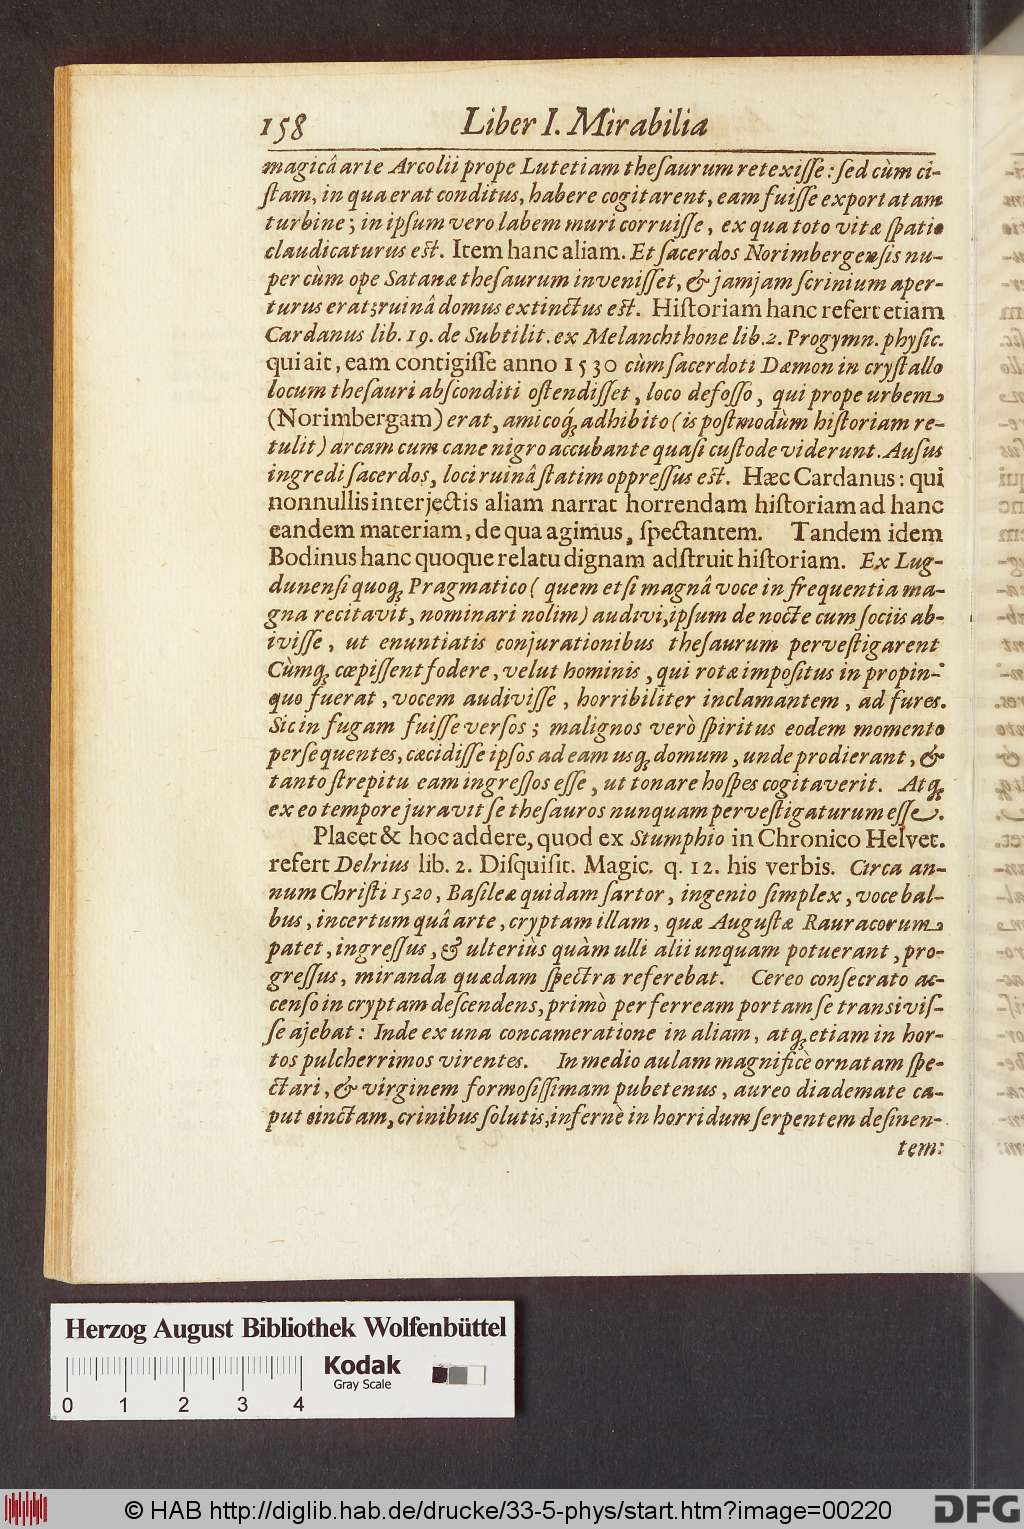 158 Liber I. Mirabilia
magicâ arte Arcolii prope Lutetiam theſaurum retexiſſe: ſed cùm ci-
ſtam, in qua erat conditus, habere cogitarent, eam fuiſſe exportatam
turbine; in ipſum vero labem muri corruiſſe, ex qua toto vitæ ſpatio
claudicaturus eſt. Item hanc aliam. Et ſacerdos Norimbergenſis nu-
per cùm ope Satanæ theſaurum inveniſſet, & jamjam ſcrinium aper-
turus erat; ruinâ domus extinctus eſt. Hiſtoriam hanc refert etiam
Cardanus lib. 19. de Subtilit. ex Melanchthone lib. 2. Progymn. phyſic.
qui ait, eam contigiſſe anno 1530 cùm ſacerdoti Dæmon in cryſtallo
locum theſauri abſconditi oſtendiſſet, loco defoſſo, qui prope urbem
(Norimbergam) erat, amicoq́; adhibito (is poſtmodùm hiſtoriam re-
tulit) arcam cum cane nigro accubante quaſi cuſtode viderunt. Auſus
ingredi ſacerdos, loci ruinâ ſtatim oppreſſus eſt. Hæc Cardanus: qui
nonnullis interjectis aliam narrat horrendam hiſtoriam ad hanc
eandem materiam, de qua agimus, ſpectantem. Tandem idem
Bodinus hanc quoque relatu dignam adſtruit hiſtoriam. Ex Lug-
dunenſi quoq; Pragmatico ( quem etſi magnâ voce in frequentia ma-
gna recitavit, nominari nolim) audivi, ipſum de nocte cum ſociis ab-
iviſſe, ut enuntiatis conjurationibus theſaurum perveſtigarent
Cùmq; cœpiſſent fodere, velut hominis, qui rotæ impoſitus in propin-
quo fuerat, vocem audiviſſe, horribiliter inclamantem, ad fures.
Sic in fugam fuiſſe verſos; malignos verò ſpiritus eodem momento
perſequentes, cæcidiſſe ipſos ad eam usq; domum, unde prodierant, &
tanto ſtrepitu eam ingreſſos eſſe, ut tonare hoſpes cogitaverit. Atq;
ex eo tempore juravit ſe theſauros nunquam perveſtigaturum eſſe.
Placet & hoc addere, quod ex Stumphio in Chronico Helvet.
refert Delrius lib. 2. Diſquiſit. Magic. q. 12. his verbis. Circa an-
num Chriſti 1520, Baſileæ quidam ſartor, ingenio ſimplex, voce bal-
bus, incertum quâ arte, cryptam illam, quæ Auguſtæ Rauracorum
patet, ingreſſus, & ulteriùs quàm ulli alii unquam potuerant, pro-
greſſus, miranda quædam ſpectra referebat. Cereo conſecrato ac-
cenſo in cryptam deſcendens, primò per ferream portam ſe transiviſ-
ſe ajebat: Inde ex una concameratione in aliam, atq; etiam in hor-
tos pulcherrimos virentes. In medio aulam magnificè ornatam ſpe-
ctari, & virginem formoſiſſimam pube tenus, aureo diademate ca-
put cinctam, crinibus ſolutis, infernè in horridum ſerpentem deſinen-
tem:
Herzog August Bibliothek Wolfenbüttel
Kodak
Gray Scale
0 1 2 3 4
© HAB http://diglib.hab.de/drucke/33-5-phys/start.htm?image=00220
DFG